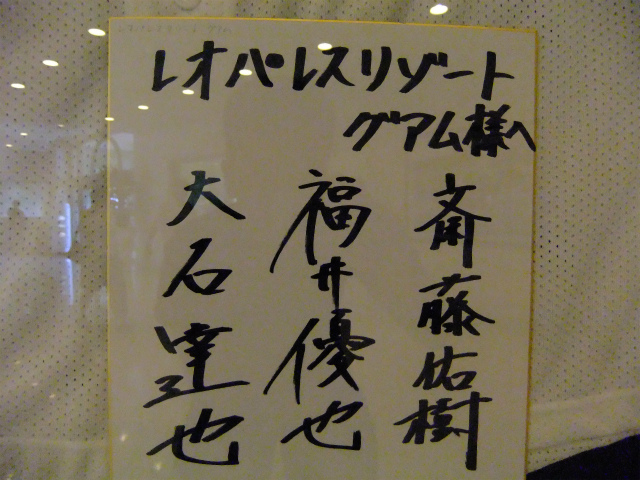 レオパレスリゾート
グアム様へ
斎藤佑樹
福井優也
大石達也